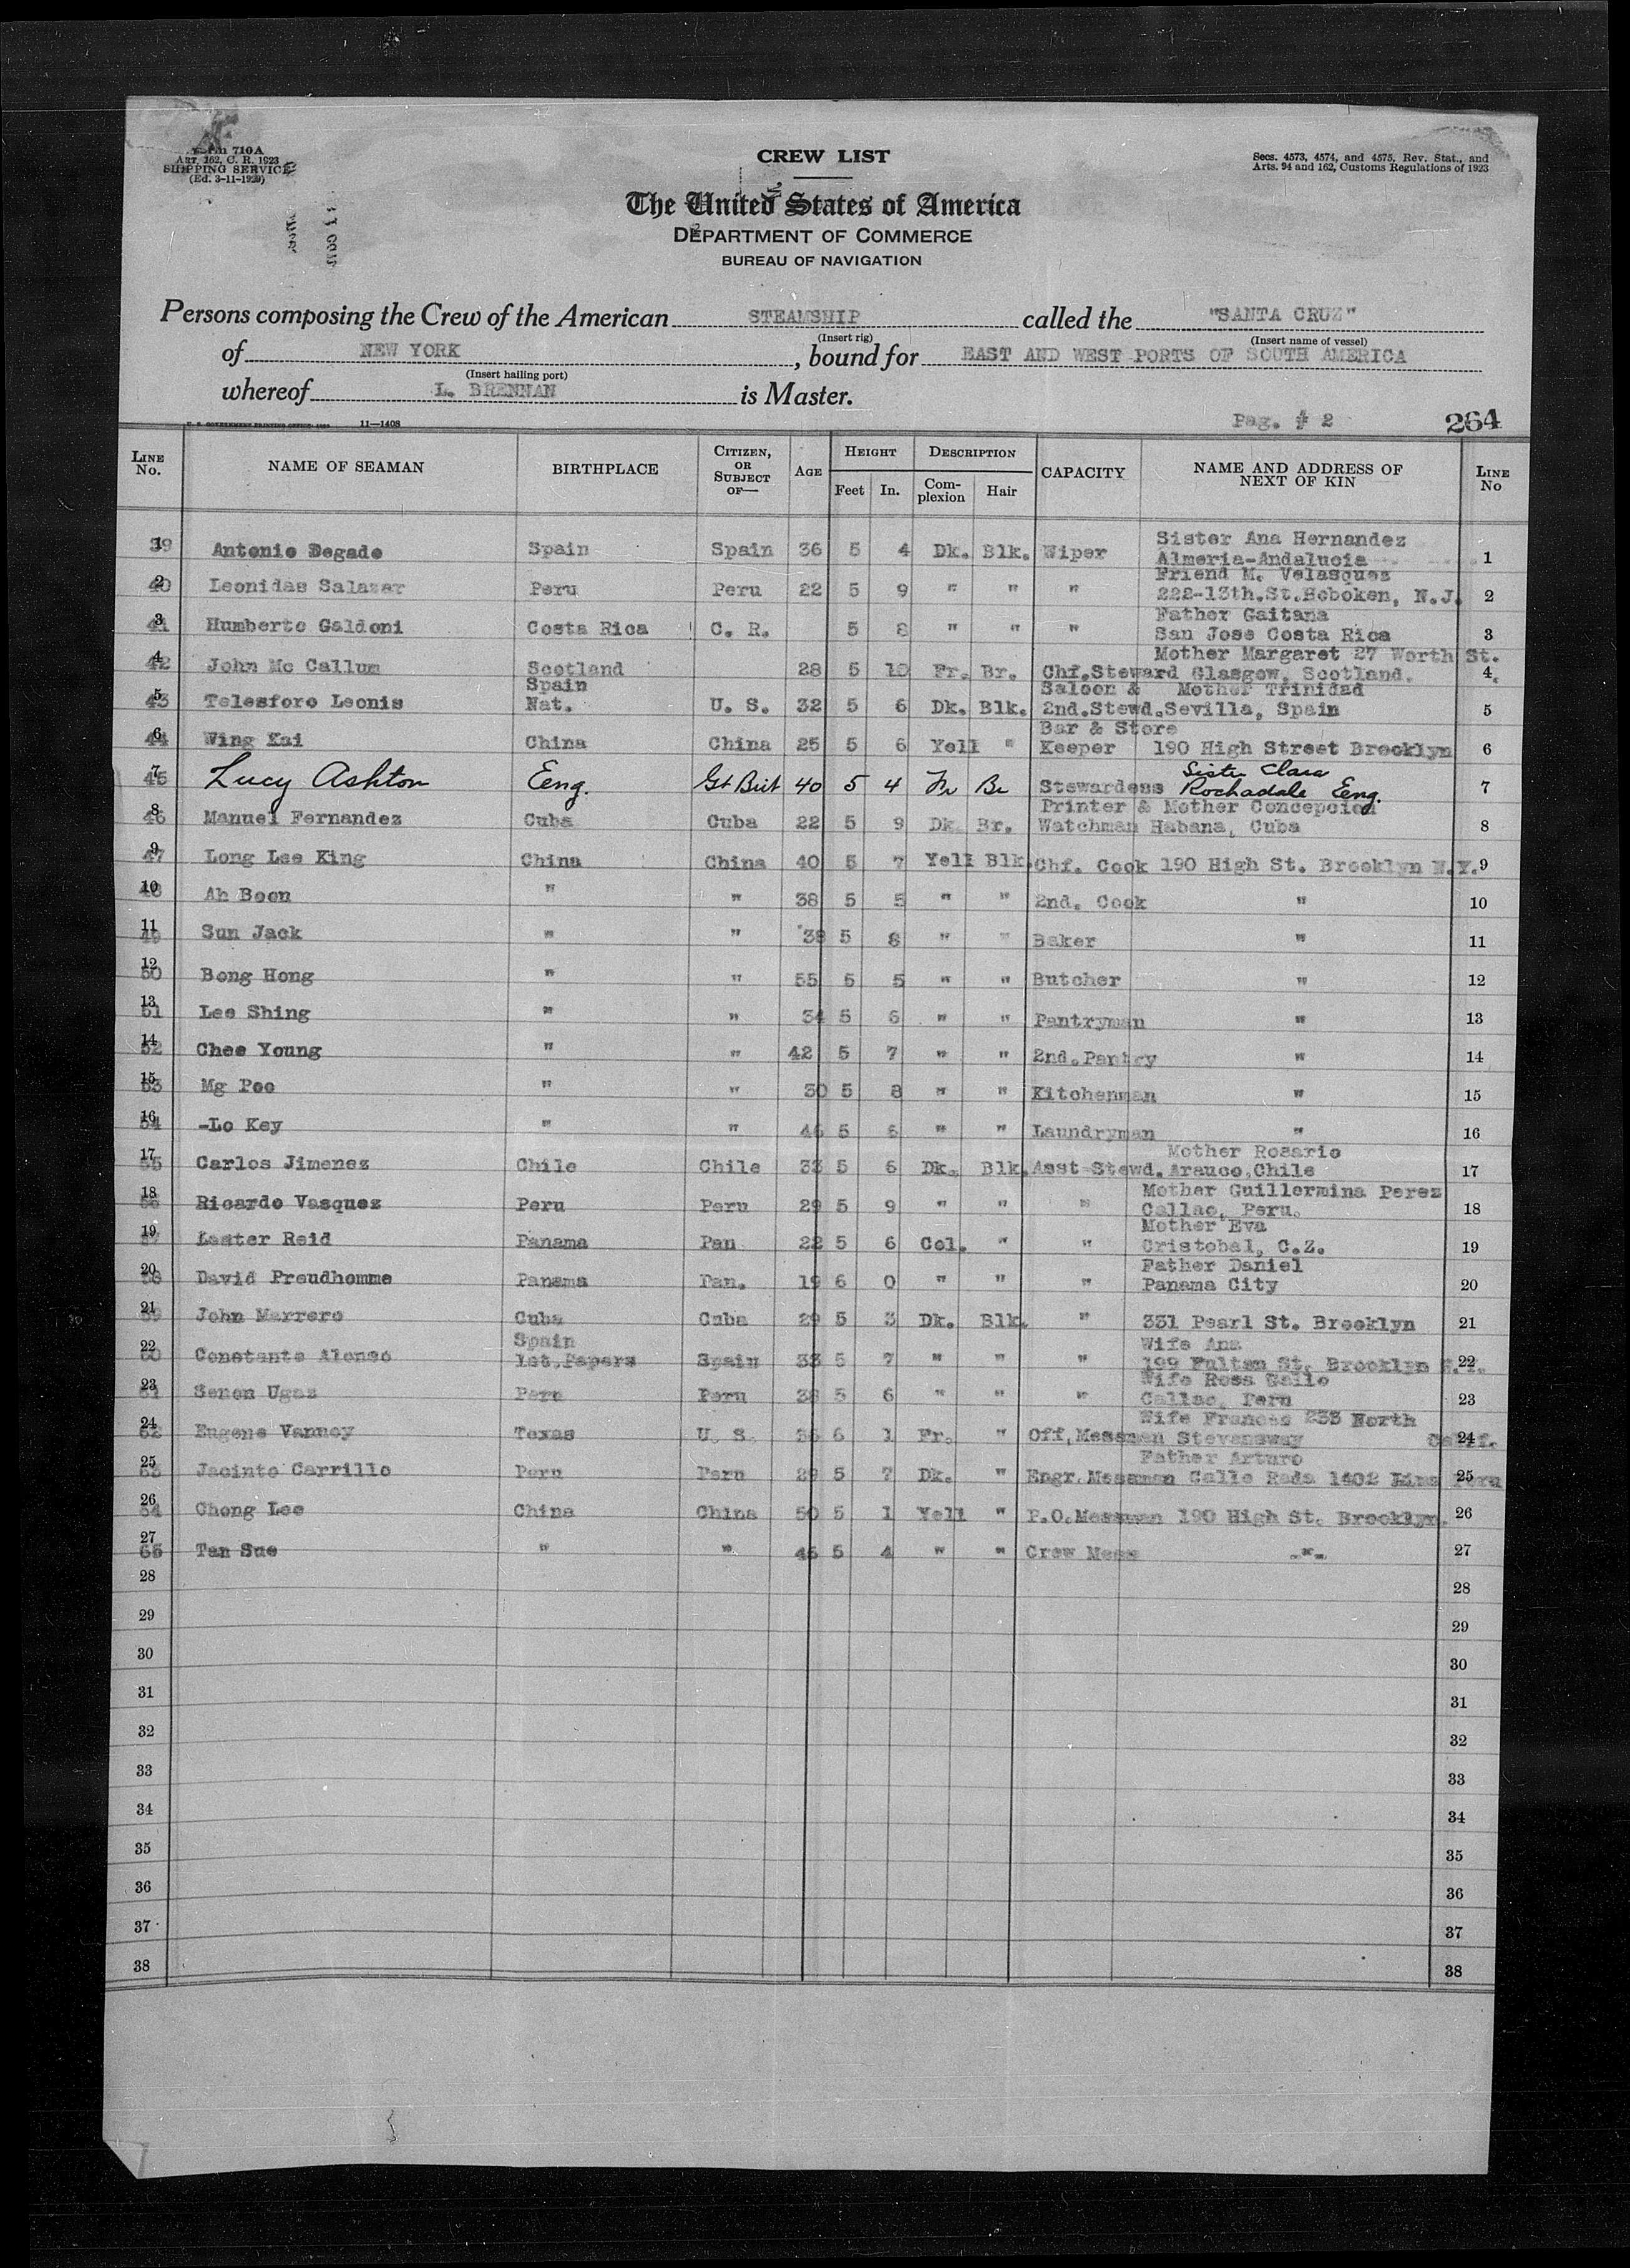 Form 710 A
ART. 162, C. R. 1923
SHIPPING SERVICE
(Ed. 3-11-1929)
CREW LIST
Secs. 4573, 4574, and 4575, Rev. Stat., and
Arts. 94 and 162, Customs Regulations of 1923
The United States of America
DEPARTMENT OF COMMERCE
BUREAU OF NAVIGATION
Persons composing the Crew of the American STEAMSHIP called the "SANTA CRUZ"
(Insert rig) (Insert name of vessel)
of NEW YORK, bound for EAST AND WEST PORTS OF SOUTH AMERICA
(Insert hailing port)
whereof L. BRENNAN is Master.
Pag. # 2 264
U. S. GOVERNMENT PRINTING OFFICE: 11—1408
LINE No. NAME OF SEAMAN BIRTHPLACE CITIZEN, OR SUBJECT OF— AGE HEIGHT Feet In. DESCRIPTION Com-plexion Hair CAPACITY NAME AND ADDRESS OF NEXT OF KIN LINE No
Sister Ana Hernandez
1 39 Antonio Degado Spain Spain 36 5 4 Dk. Blk. Wiper Almeria-Andalucia 1
Friend M. Velasquez
2 40 Leonidas Salazar Peru Peru 22 5 9 " " " 222-13th.St.Hoboken, N.J. 2
Father Gaitana
3 41 Humberto Galdoni Costa Rica C. R. 5 8 " " " San Jose Costa Rica 3
Mother Margaret 27 Worth St.
4 42 John Mc Callum Scotland 28 5 10 Fr. Br. Chf.Steward Glasgow, Scotland. 4
Spain Saloon & Mother Trinidad
5 43 Telesforo Leonis Nat. U. S. 32 5 6 Dk. Blk. 2nd.Stewd.Sevilla, Spain 5
Bar & Store
6 44 Wing Kai China China 25 5 6 Yell " Keeper 190 High Street Brooklyn 6
Sister Clara
7 45 Lucy Ashton Eeng. Gt Brit 40 5 4 Fr Br Stewardess Rochadale Eeng. 7
Printer & Mother Concepcion
8 46 Manuel Fernandez Cuba Cuba 22 5 9 Dk. Br. Watchman Habana, Cuba 8
9 47 Long Lee King China China 40 5 7 Yell Blk. Chf. Cook 190 High St. Brooklyn N.Y. 9
10 48 Ah Boon " " 38 5 5 " " 2nd. Cook " 10
11 49 Sun Jack " " 38 5 8 " " Baker " 11
12 50 Bong Hong " " 55 5 5 " " Butcher " 12
13 51 Lee Shing " " 34 5 6 " " Pantryman " 13
14 52 Chee Young " " 42 5 7 " " 2nd.Pantry " 14
15 53 Mg Poo " " 30 5 8 " " Kitchenman " 15
16 54 -Lo Key " " 46 5 6 " " Laundryman " 16
Mother Rosario
17 55 Carlos Jimenez Chile Chile 33 5 6 Dk. Blk. Asst Stewd. Arauco,Chile 17
Mother Guillermina Perez
18 56 Ricardo Vasquez Peru Peru 29 5 9 " " " Callao, Peru. 18
Mother Eva
19 57 Lester Reid Panama Pan 22 5 6 Col. " " Cristobal, C.Z. 19
Father Daniel
20 58 David Preudhomme Panama Pan. 19 6 0 " " " Panama City 20
21 59 John Marrero Cuba Cuba 29 5 3 Dk. Blk. " 331 Pearl St. Brooklyn 21
Spain Wife Ana
22 60 Constante Alonso 1st.Papers Spain 33 5 7 " " " 199 Fulton St. Brooklyn N.Y. 22
Wife Rosa Gallo
23 61 Senen Ugaz Peru Peru 38 5 6 " " " Callao, Peru 23
Wife Frances 233 North
24 62 Eugene Vannoy Texas U. S. 36 6 1 Fr. " Off.Messman Stevensway Calif. 24
Father Arturo
25 63 Jacinto Carrillo Peru Peru 29 5 7 Dk. " Engr.Messman Calle Rada 1402 Lima Peru 25
26 64 Chong Lee China China 50 5 1 Yell " P.O.Messman 190 High St. Brooklyn. 26
27 65 Tan Sue " " 45 5 4 " " Crew Mess -"- 27
28 28
29 29
30 30
31 31
32 32
33 33
34 34
35 35
36 36
37 37
38 38